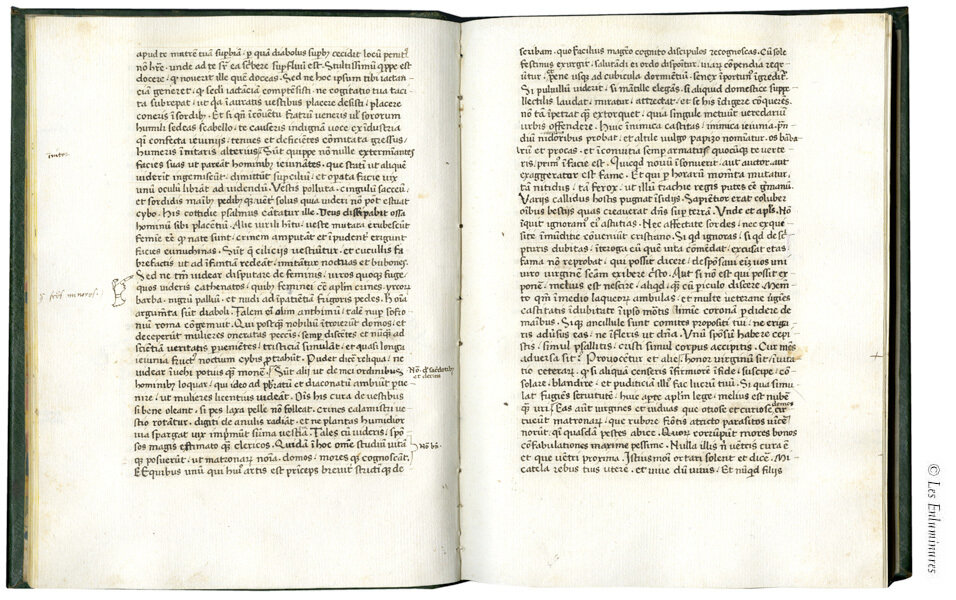 apud te matrē tuā supbiā. p quā diabolus supb9 cecidit locū penit9
nō hr̄e. unde ad te sr̄ ea scribere supfluū est. Stultissimū quippe est
docere. qd nouerit ille quē doceas. Sed ne hoc ipsum tibi iactan
ciā generet. qd seclī iactāciā comptēsisti. ne cogitatio tua taci
ta subrepat. ut qa ī auratis uestibus placere desisti. placere
coneris ī sordib9. Et si qn̄ ī cōuētu fratrū ueneris ul' sororum
humili sedeas scabello. te causeris indignā. uoce ex īdustria
qsi confecta ieiuniis. tenues et deficiētis cōmutata gressus.
humeris īnitaris alterius. Sūt quippe nōnulle exterminantes
facies suas ut pareāt hominib9 ieiunātes. que stati ut aliquē
uiderit ingemiscūt. dimittūt supciliū. et opata facie uix
unū oculū librāt ad uidendū. Vestis pulla. cingulū sacceū.
et sordidis manib9 pedibusq;. uēt' solus quia uideri nō pōt estuat
cybo. His cottidie psalmus cātatur ille. Deus dissipabit ossa
hominū sibi placētiū. Alie uirili hītu. ueste mutata erubescūt
femīe eē qd nate sunt. crinem amputāt. et īpudent' erigunt
facies eunuchinas. Sūt q ciliciis uestiūtur. et cucullis fa
brefactis ut ad īfantiā redeāt. imitātur noctuas et bubones.
Sed ne tm̄ uidear disputare de feminis. uiros quoq; fuge
quos uideris cathenatos. quib9 feminei cōt̄ apl'm crines. yrcorū
barba. nigrū palliū. et nudi ad ipatientiā frigoris pedes. Hec oīa
argumēta sūt diaboli. Talem et olim anthimū. talē nup sofro
niū roma cōgemuit. Qui postq; nobiliū ītroierūt domos. et
deceperūt mulieres onustatas peccīs. semp discētes et nūq; ad
sciētiā ueritatis puenientes. tristiciā simulāt. et quasi longa
ieiunia furtiuis noctium cybis ptrahūt. Pudet dicere reliqua. ne
uidear īuehi potius q; monere. Sūt alij ut de mei ordinibus
hominib9 loquar. qui ideo ad pbratū et diaconatū ambiūt pue
nire. ut mulieres licentius uideāt. Ois his cura de uestibus
si bene oleant. si pes laxa pelle nō folleat. crines calamistri ue
stio rotātur. digiti de anulis radiāt. et ne plantas humidior
uia spargat. uix īprimūt sūma uestigia. Tales cū uideris. spō
sos magis estimato q; clericos. Quidā ī hoc omē studiū uitā
q; posuerūt. ut matronar nomīa. domos. mores q; cognoscāt.
Ex quibus unū qui hui9 artis est prīceps breuit' strictiq; de
Nō. qd sacerdotib9
Nō. bn̄.
scribam. quo facilius magro cognito discipulos recognoscas. Cū sole
festinus exurgit. salutādi ei ordo dispoītur. uiar cōpendia reqr
ūtur. Pene usq; ad cubicula dormiētiū. senex īportun9 īgreditur.
Si puluillū uiderit. si mantille elegans. si aliquid domestice supe
llectilis. laudat. miratur. attrectat. et se his īdigere cōquerēs.
nō tā īpetrat q; extorquet. quia singule metuūt ueredariū
urbis offendere. Huic inimica castitas. inimica ieiunia. prā
diū nidoribus probat. et altile uulgo papizo nomīatur. os barba
rū et procax. et ī conuitia semp armatus. quocūq; te uerte
ris. prim9 ī facie est. Quicqd nouū īsonuerit. aut auctor. aut
exaggeratur est fame. Et qui p horarū momīta mutatur.
tā nitidus. tā ferox. ut illū trachie regis putes eē germanū.
Variis callidus hostis pugnat īsidijs. Sapiētior erat coluber
oībus bestijs quas creauerat dns sup terrā. Vnde et apl's. Nō
īquit ignoram9 ei9 astutias. Nec affectate sordes. nec exque
site. īmūditie cōueniūt cristiano. Si qd ignoras. si qd de scri
pturis dubitas. īterroga eū quē uita cōmēdat. excusat etas.
fama nō reprobat. qui possit dicere. despōsaui eīz uos uni
uiro uirginē scām exibere cristo. Aut si nō est qui possit ex
ponere. melius est nescire aliqd. q; cū piculo discere. Memē
to qm̄ ī medio laqueorz ambulas. et multe ueterane uirgīes
castitatis īdubitate ī ipso mortis limīe coronā pdidere de
manibus. Siq; ancillule sunt comites propositi tui. ne erigā
ris aduersus eas. ne īfleris ut dn̄a. Vnū spōsū habere cepi
stis. simul psallitis. cristi simul corpus accipitis. Cur mēsa
aduersa sit? Prouocētur et alie. Honor uirginū sit īuita
tio ceterarz. q; si aliquā senseris īfirmiorē ī fide. suscipe. cō
solare. blandire. et pudicitiā illi9 fac lucrū tuū. Si qua simu
lat fugiēs seruitutē. huic apte apl'm lege. melius est nubere
q; uri. Eas aūt uirgines et uiduas que otiose et curiose domos cir
cueūt matronarz. que rubore frōtis attrito parasitos uicē
norūt. qsi quasdā pestes abice. Quorz corrūpūt mores bonos
cōfabulationes maxime pessime. Nulla illis nī uētris cura ē
et que uētri proxima. Istiusmōi ortari solent et dicere. Mi
catela rebus tuis utere. et uiue dū uiuis. Et nūqd filijs
© Les Enluminures